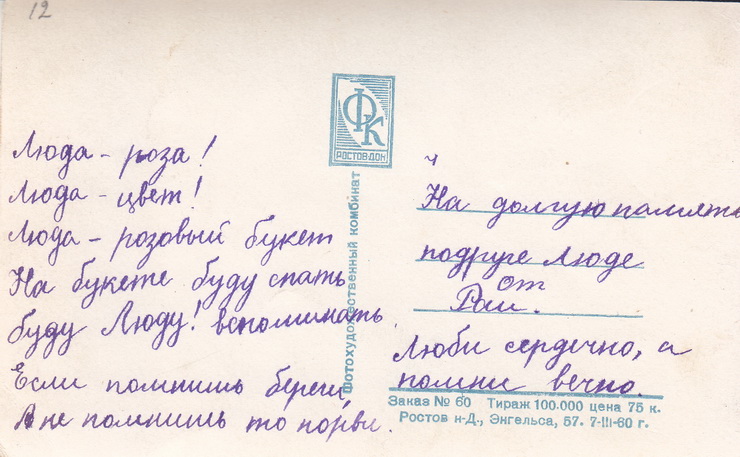 12
Люда - роза!
Люда - цвет!
Люда - розовый букет
На букете буду спать
буду Люду! вспоминать
Если помнишь береги,
А не помнишь то порви.
ФК
РОСТОВ-ДОН
Фотохудожественный комбинат
На долгую память
подруге Люде
от
Раи.
Люби сердечно, а
помни вечно.
Заказ № 60 Тираж 100.000 цена 75 к.
Ростов н-Д., Энгельса, 57. 7-III-60 г.